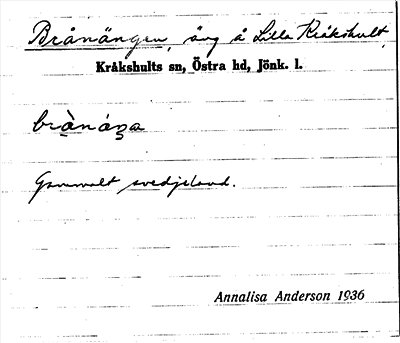 Brånängen, äng å Lilla Kråkshult,
Kråkshults sn, Östra hd, Jönk. l.
Gammalt svedjeland.
Annalisa Anderson 1936